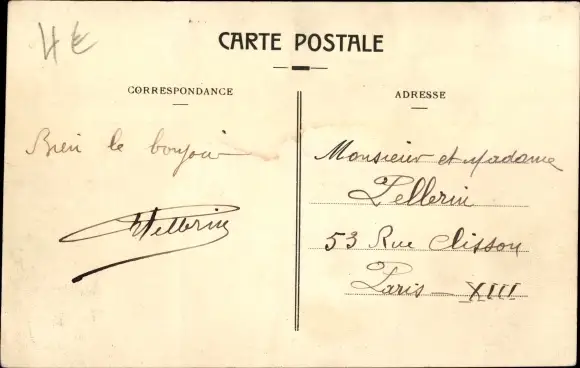 4€
CARTE POSTALE
CORRESPONDANCE
Bien le bonjour
Pellerin
ADRESSE
Monsieur et Madame
Pellerin
53 Rue Clisson
Paris - XIII